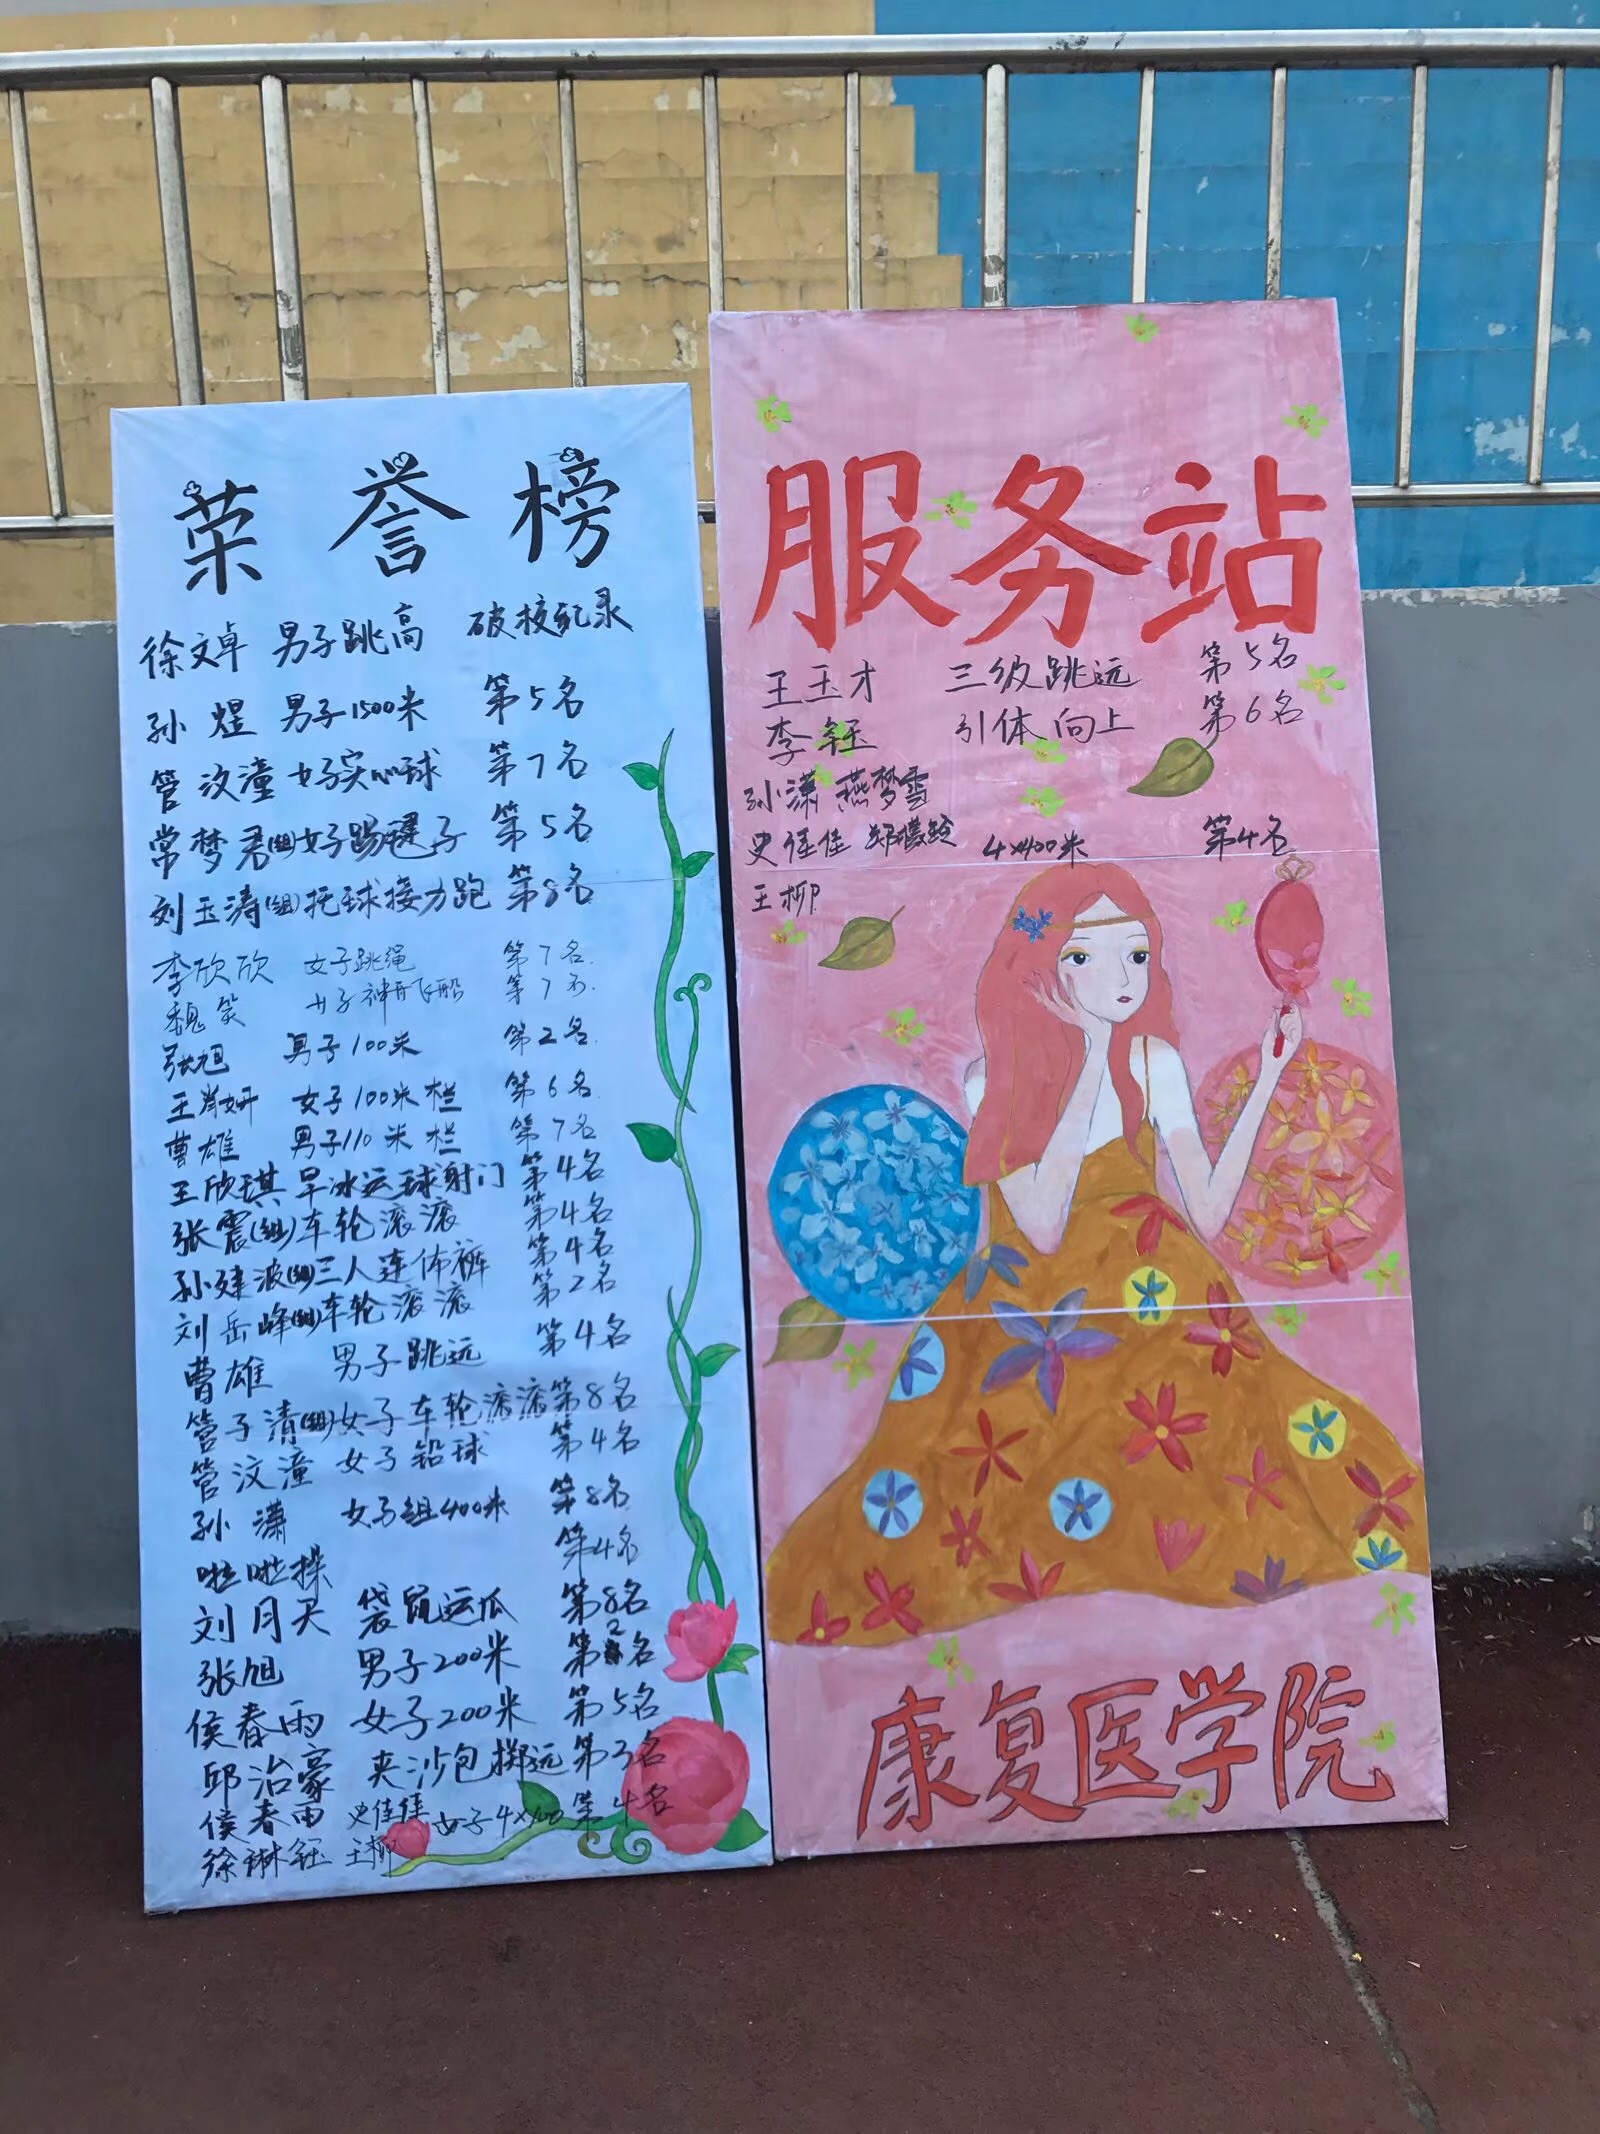 荣誉榜
徐文卓 男子跳高 破校纪录
孙煜 男子1500米 第5名
管汶潼 女子实心球 第7名
常梦君(组)女子踢毽子 第5名
刘玉涛(组)托球接力跑 第8名
李欣欣 女子跳绳 第7名
魏笑 女子神舟飞船 第7名
张旭 男子100米 第2名
王肖妍 女子100米栏 第6名
曹雄 男子110米栏 第7名
王欣琪 旱冰运球射门 第4名
张震(组)车轮滚滚 第4名
孙建波(组)三人连体裤 第4名
刘岳峰(组)车轮滚滚 第2名
曹雄 男子跳远 第4名
管子清(组)女子车轮滚滚 第8名
管汶潼 女子铅球 第4名
孙潇 女子组400米 第8名
啦啦操 第4名
刘月天 袋鼠运瓜 第8名
张旭 男子200米 第2名
侯春雨 女子200米 第5名
邱治豪 夹沙包掷远 第3名
侯春雨 史佳佳 女子4×400 第4名
徐琳钰 王柳
服务站
王玉才 三级跳远 第5名
李钰 引体向上 第6名
孙潇 燕梦雪
史佳佳 郑檬玲 4×400米 第4名
王柳
康复医学院